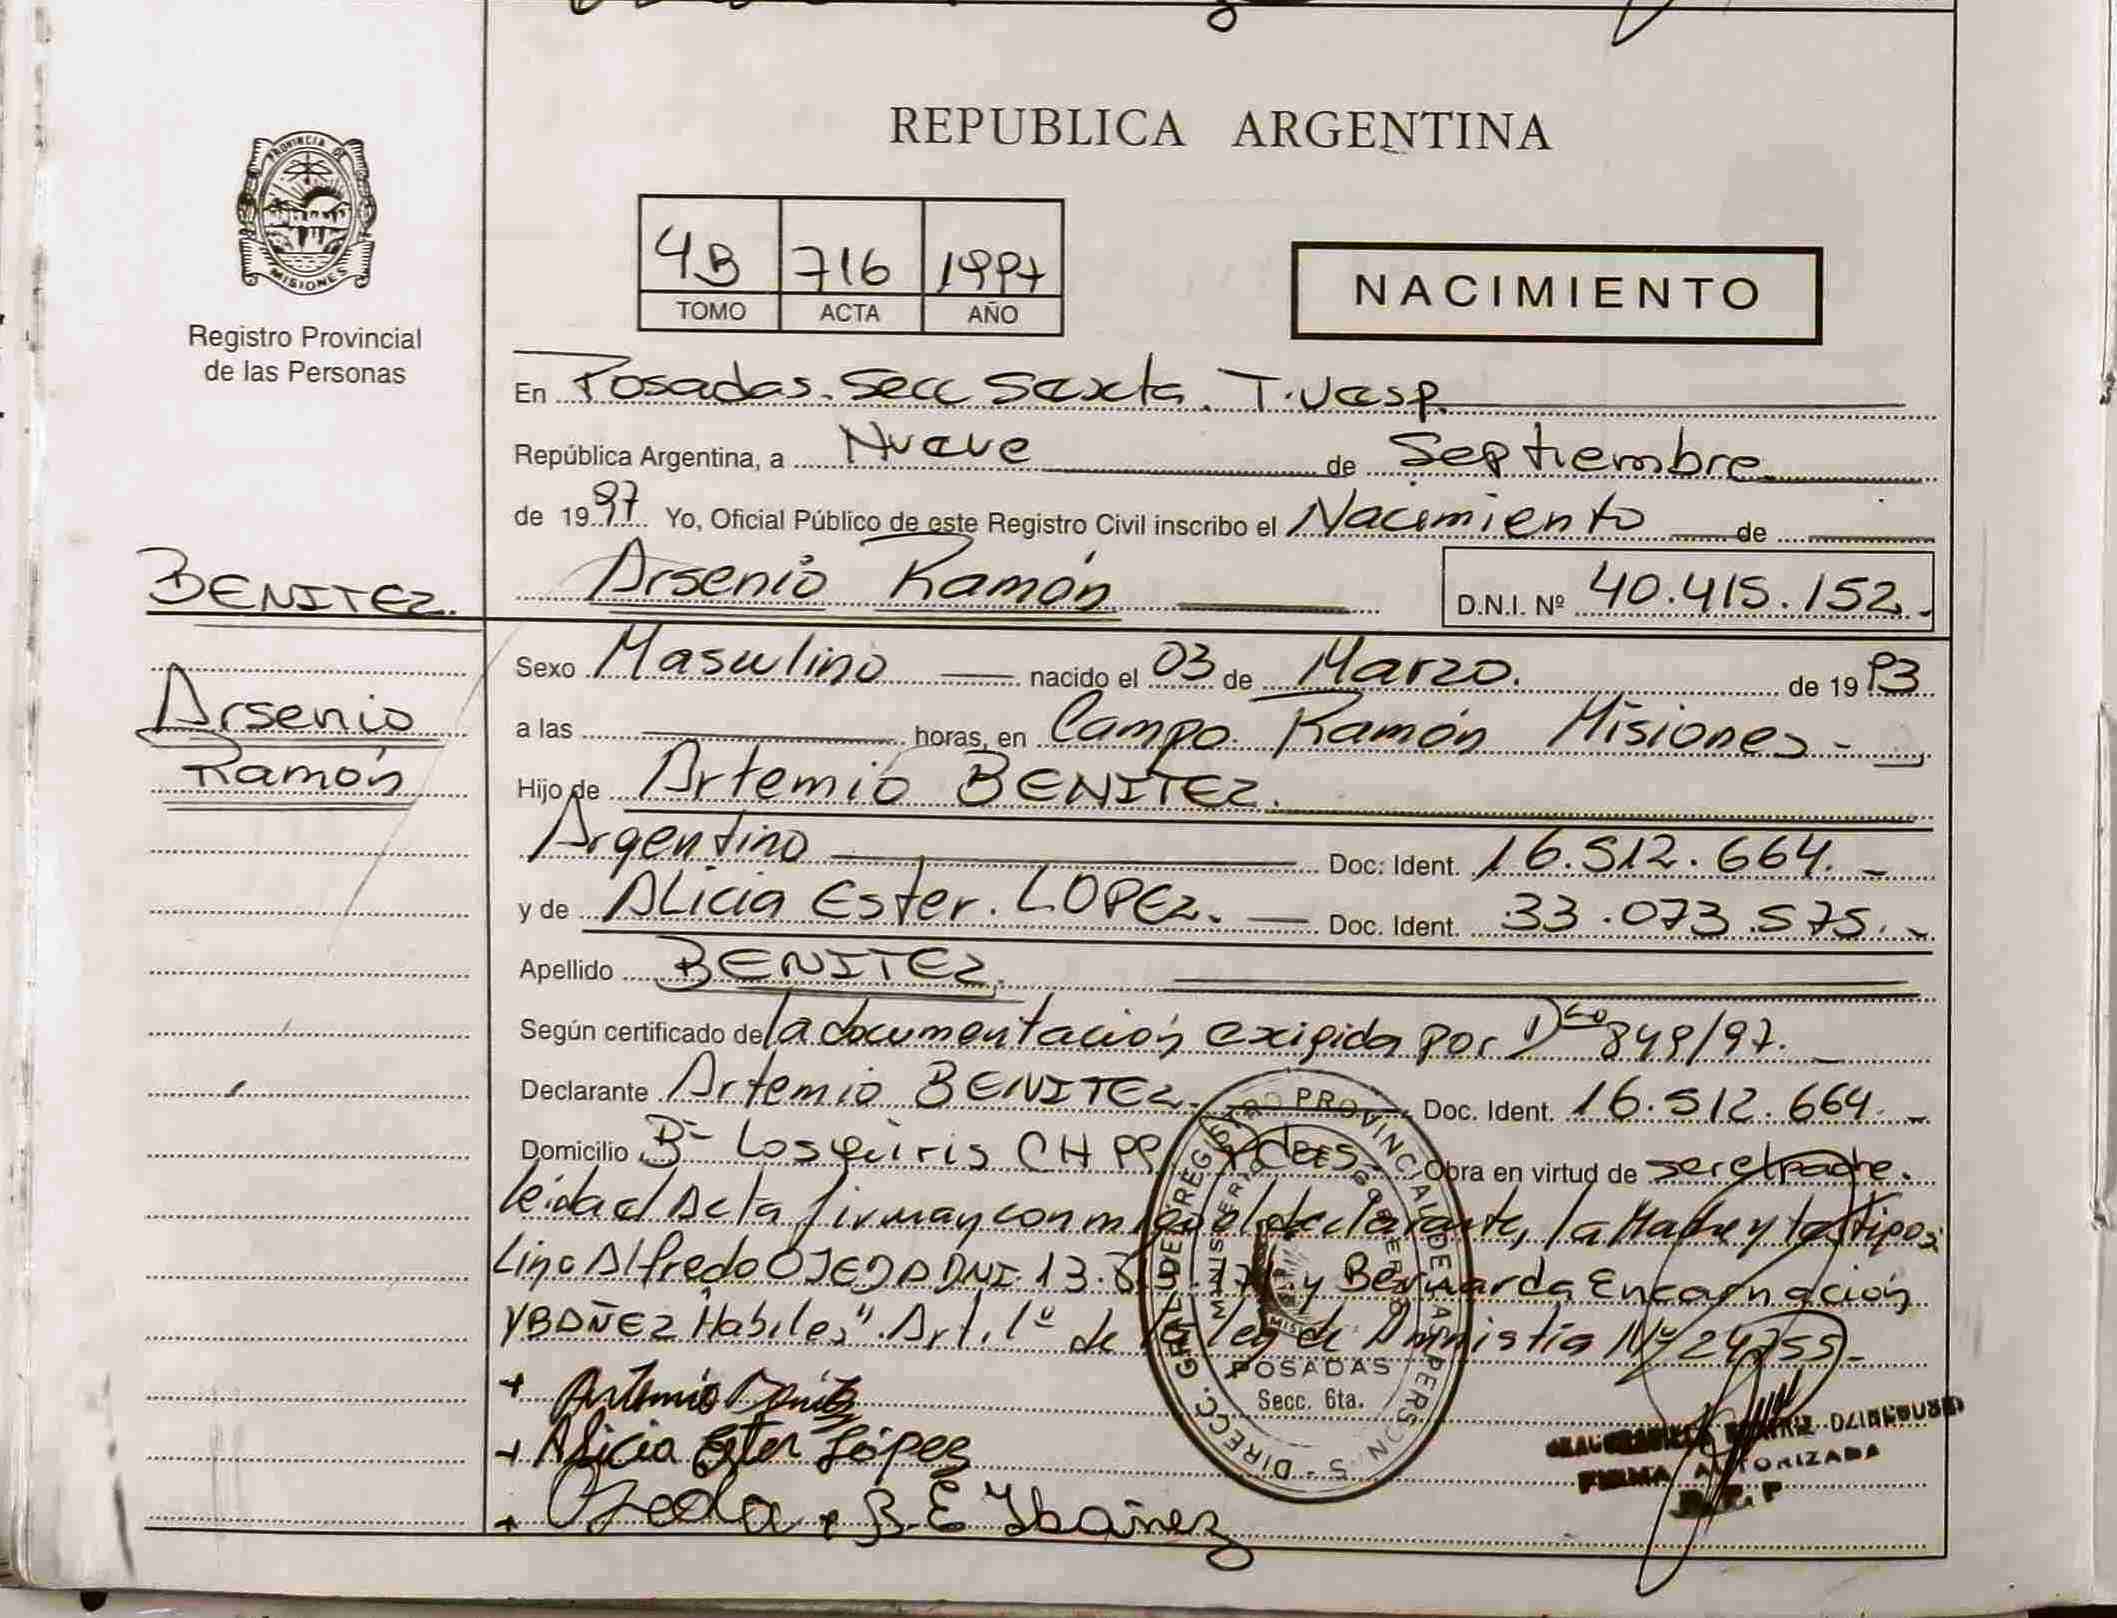 PROVINCIA DE
MISIONES
Registro Provincial
de las Personas
REPUBLICA ARGENTINA
4B 716 1997
TOMO ACTA AÑO
NACIMIENTO
En Posadas. Secc Sexta. T. Vesp.
República Argentina, a Nueve de Septiembre
de 1997 Yo, Oficial Público de este Registro Civil inscribo el Nacimiento de
BENITEZ.
Arsenio Ramón D.N.I. Nº 40.415.152.-
Arsenio
Ramón
Sexo Masculino nacido el 03 de Marzo. de 1993
a las horas, en Campo Ramón Misiones-
Hijo de Artemio BENITEZ.
Argentino Doc. Ident. 16.512.664.-
y de Alicia Ester. LOPEZ. Doc. Ident. 33.073.575.-
Apellido BENITEZ.
Según certificado de la documentación exigida por Dto 849/97.-
Declarante Artemio BENITEZ. Doc. Ident. 16.512.664.-
Domicilio Bº Los quiris CH Obra en virtud de ser el padre.
leida el Acta firman conmigo el declarante, la Madre y los
Lino Alfredo OJEDA DNI. 13. y Bernarda Encarnación
YBAÑEZ "Habiles". Art. 1º de la ley de Amnistia Nº 24755-
DIRECC. GRAL. DEL REGISTRO PROVINCIAL DE LAS PERSONAS
MINISTERIO DE GOBIERNO
POSADAS
Secc. 6ta.
+ Artemio Benitez
+ Alicia Ester López
+ Ojeda + B. E Ibañez
FIRMA AUTORIZADA